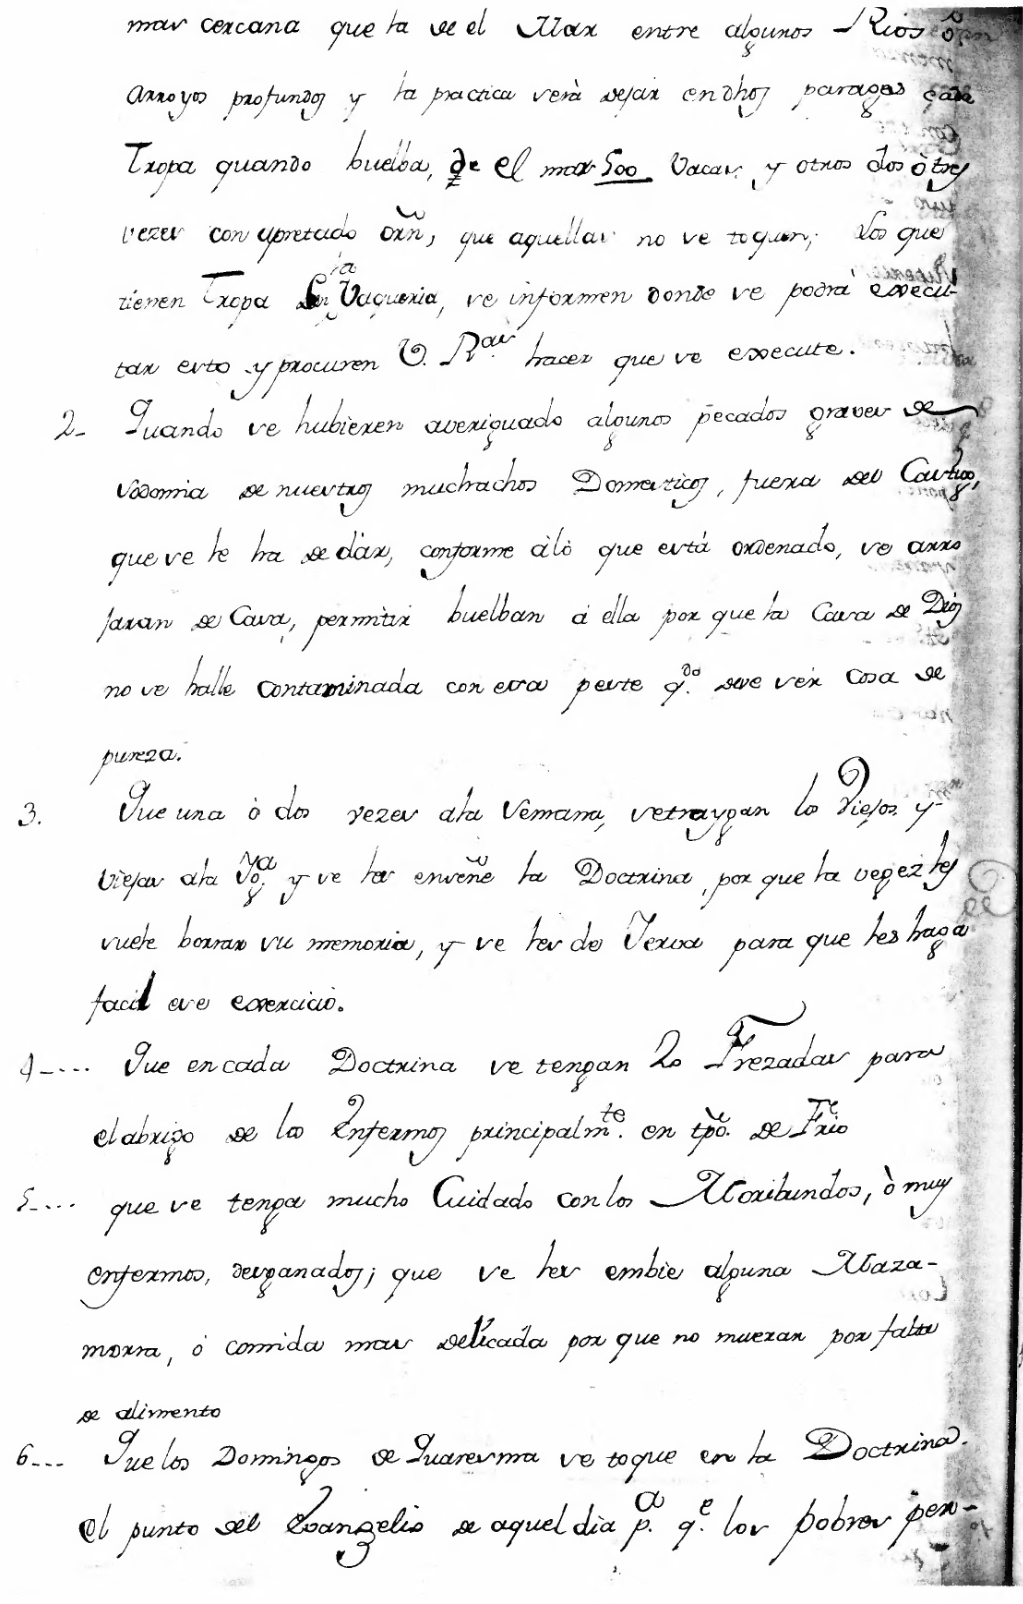 mas cercana que la de el Mar entre algunos Rios ô
arroyos profundos y la practica verà dejar en dhos parages cada
Tropa quando buelba, de el mar 500 Vacas y otros dos ò tres
vezes con apretado orñ, que aquellas no se toquen; Los que
tienen Tropa en la Vaqueria, se informen donde se podrá execu-
tar esto y procuren V. Ras hacer que se execute.
2- Quando se hubieren averiguado algunos pecados graves de
sodomia de nuestros muchachos Domesticos, fuera del Castigo,
que se le ha de dàr, conforme àlò que està ordenado, se arro
jaran de Casa, permitir buelban á ella por que la Casa de Dios
no se halle contaminada con esta peste q.do deve ver cosa de
pureza.
3. Que una ò dos vezes ala Semana, se traygan los Viejos y
viejas ala Yg.a y se les enseñe la Doctrina, por que la vegez les
suele borrar su memoria, y se les de Yerva para que les haga
facil ese exercicio.
4-... Que en cada Doctrina se tengan 20 Frezadas para
el abrigo de los Enfermos principalm.te en tpo. de Frio
5-... que se tenga mucho Cuidado con los Moribundos, ò muy
enfermos, desganados; que se les embie alguna Maza-
morra, ò comida mas delicada por que no mueran por falta
de alimento
6-... Que los Domingos de Quaresma se toque en la Doctrina.
el punto del Evangelio de aquel dia p.a q.e los pobres pen-